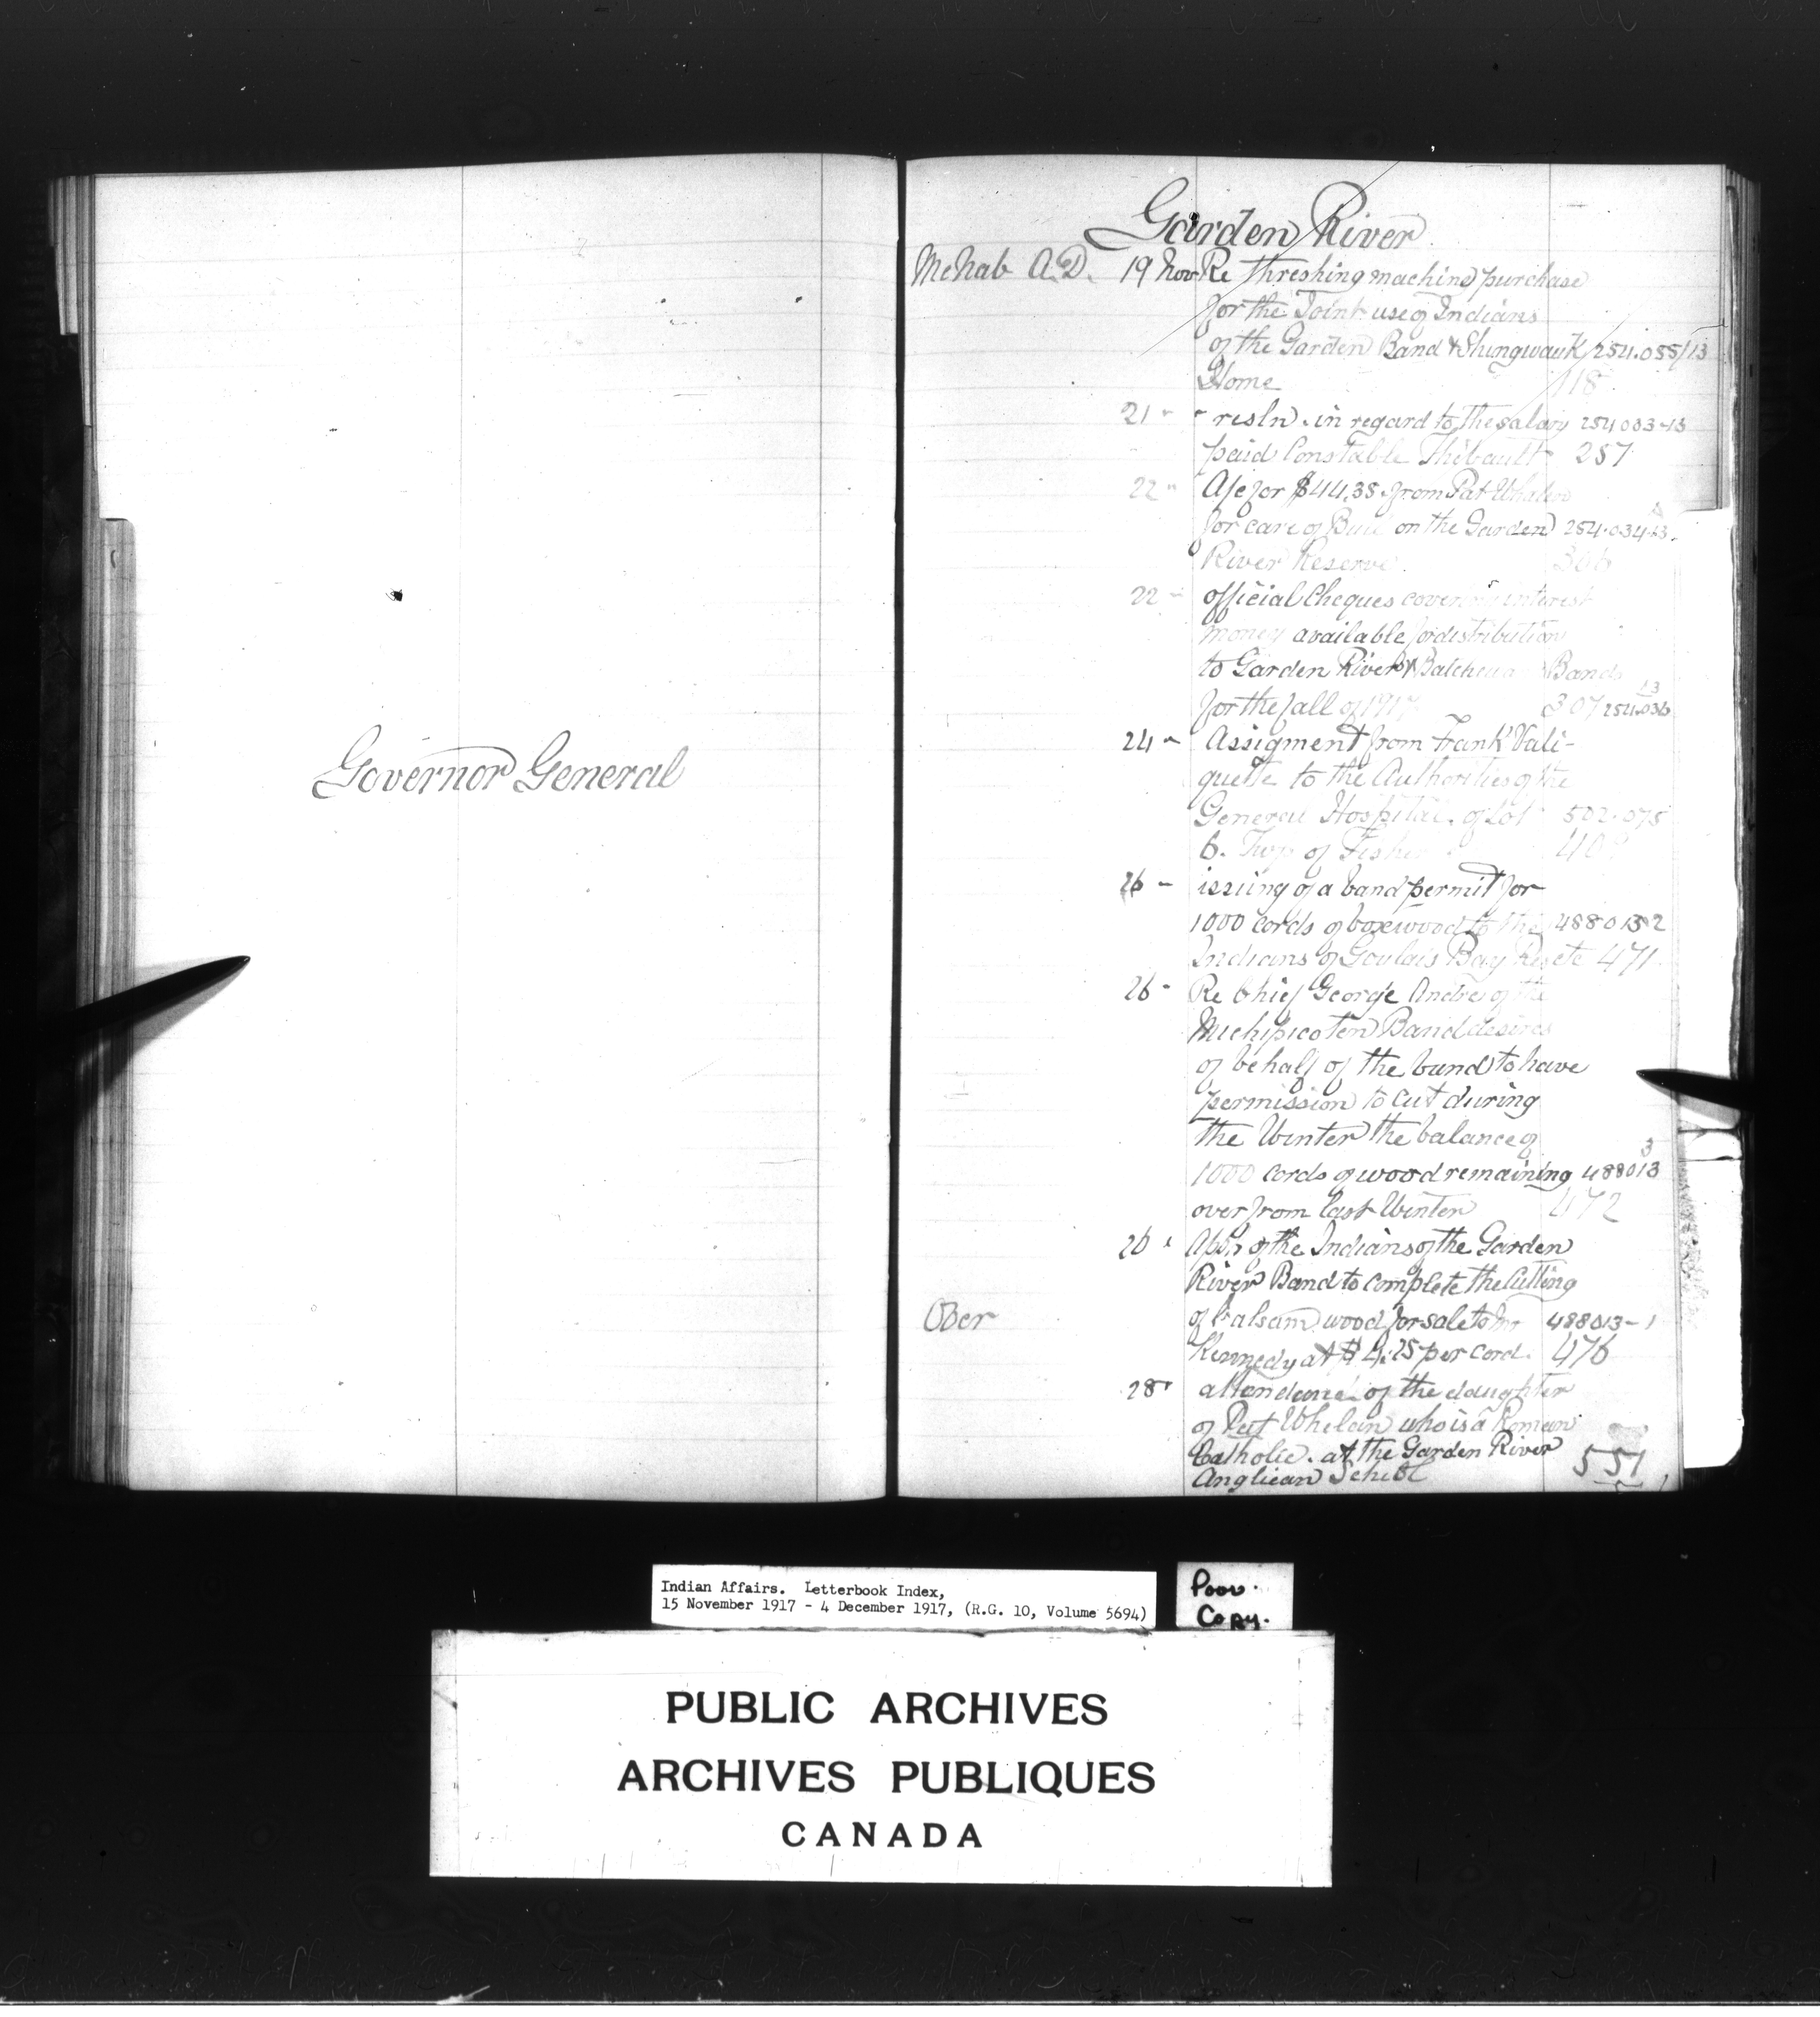 Governor General
Garden River
McNab A.D. 19 Nov Re threshing machine purchase
for the Joint use of Indians
of the Garden Band & Shingwauk 254.055/13
Home 118
21 " " resln. in regard to the salary 254033-13
paid Constable Thibault 257
22 " A/c for $44.35 from Pat Whalen
for care of Bull on the Garden 254.034-13.
River Reserve. 306
22 " official Cheques covering interest
money available for distribution
to Garden River & Batchewa Bands
for the fall of 1917 307 254.036 13
24 " Assigment from Frank Vali-
quette to the Authorities of the
General Hospital. of Lot 502.075
6. Twp of Fisher 40
26 " issiing of a band permit for
1000 cords of boxwood to the 488013-2
Indians of Goulais Bay Res etc 471
26 " Re Chief George Andre of the
Michipicoten Band desires
of behalf of the band to have
permission to cut during
the Winter the balance of
1000 cords of wood remaining 488013 3
over from last Winter 472
26 " of the Indians of the Garden
River Band to complete the Cutting
Over of balsam wood for sale to Mr 488013-1
Kennedy at $4.25 per cord. 476
28 " attendance of the daughter
of Pat Whelan who is a Roman
Catholic. at the Garden River 551
Anglican School
Indian Affairs. Letterbook Index,
15 November 1917 - 4 December 1917, (R.G. 10, Volume 5694)
Poor.
Copy.
PUBLIC ARCHIVES
ARCHIVES PUBLIQUES
CANADA